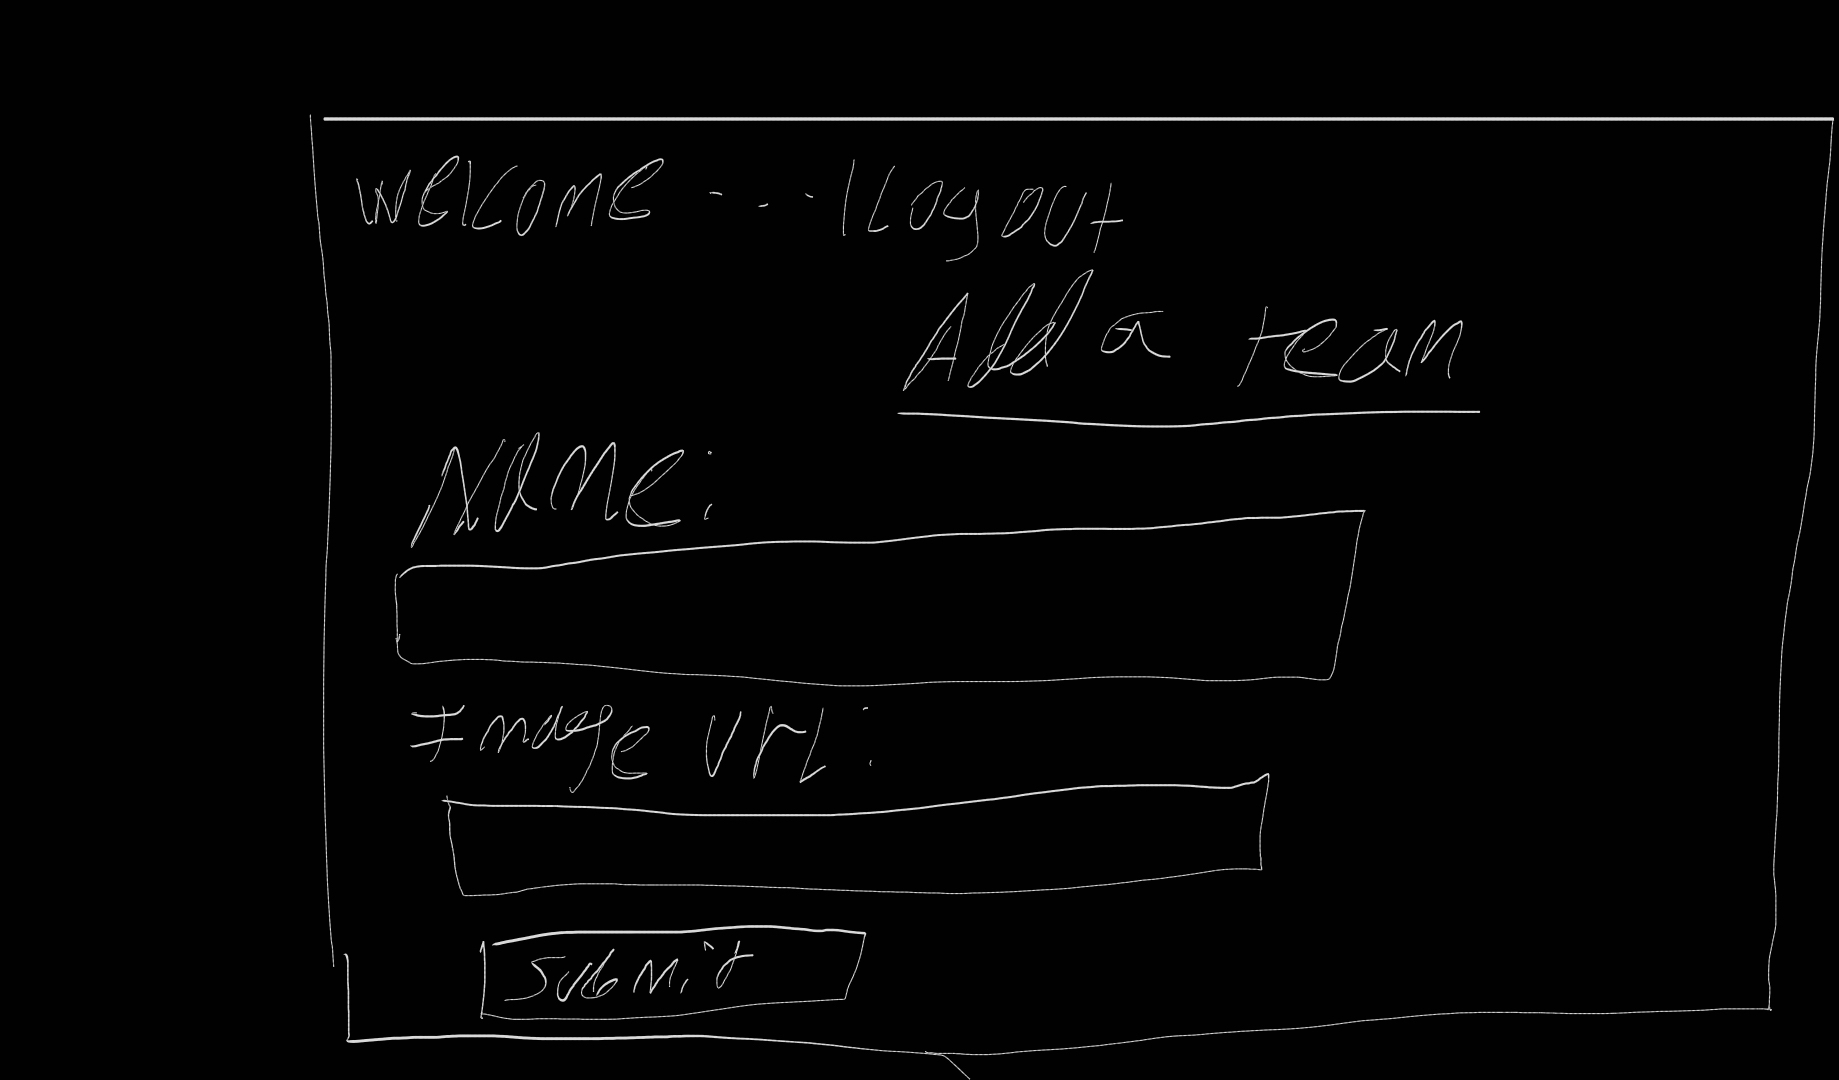 Welcome - - - | Logout
Add a team
Name:
Image Url:
Submit